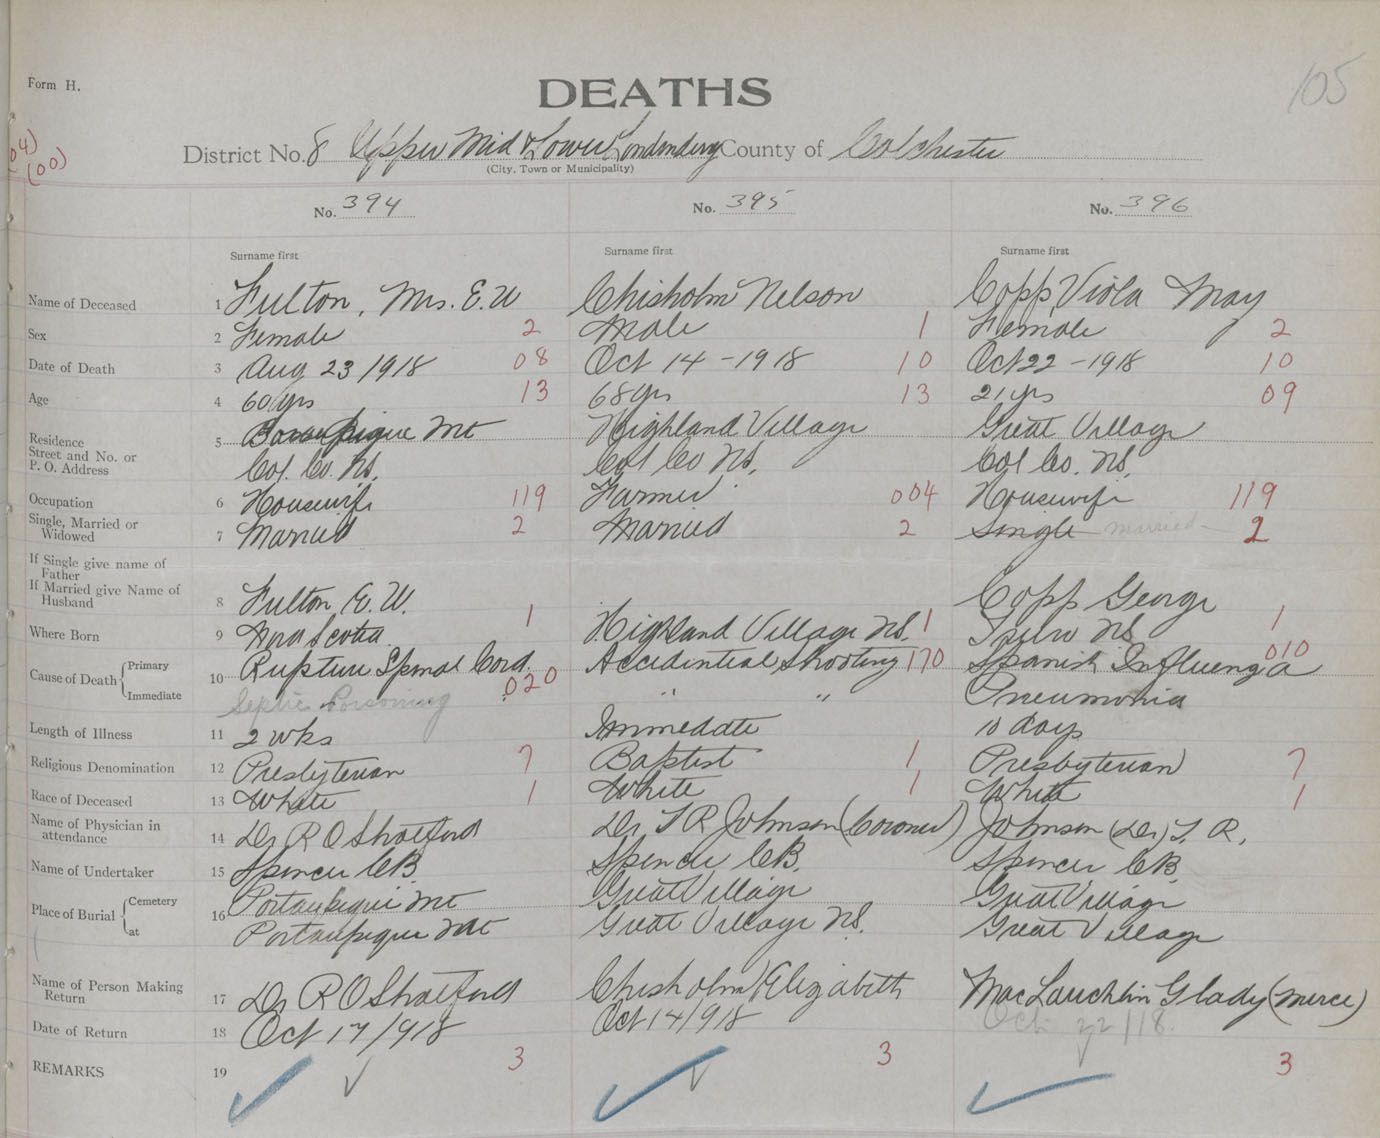 Form H.
105
DEATHS
04)
(00)
District No. 8 Upper Mid & Lower Londonderry County of Colchester
(City, Town or Municipality)
No. 394 No. 395 No. 396
Surname first Surname first Surname first
Name of Deceased 1 Fulton, Mrs. E. W Chisholm Nelson Copp, Viola May
Sex 2 Female 2 Male 1 Female 2
Date of Death 3 Aug 23/1918 08 Oct 14-1918 10 Oct 22-1918 10
Age 4 60 yrs 13 68 yrs 13 21 yrs 09
Residence
Street and No. or
P. O. Address
5 Mt Highland Village Great Village
Col. Co. N.S. Col Co N.S. Col Co. N.S.
Occupation 6 Housewife 119 Farmer 004 Housewife 119
Single, Married or
Widowed
7 Married 2 Married 2 Single married 2
If Single give name of
Father
If Married give Name of
Husband
8 Fulton, E. W. Copp George
Where Born 9 Nova Scotia 1 Highland Village N.S. 1 Truro N.S. 1
Cause of Death Primary 10 Rupture Spinal Cord. 020 Accidential Shooting 170 Spanish Influenza 010
Immediate Septic Poisoning " " Pneumonia
Length of Illness 11 2 wks Immedate 10 days
Religious Denomination 12 Presbyterian 7 Baptist 1 Presbyterian 7
Race of Deceased 13 White 1 White 1 White 1
Name of Physician in
attendance
14 Dr R O Shatford Dr. T R Johnson (Coroner) Johnson (Dr) T. R.
Name of Undertaker 15 Spencer C.B. Spencer C.B. Spencer C.B.
Place of Burial Cemetery 16 Portaupique Mt Great Village Great Village
at Portaupique Mt Great Village N.S. Great Village
Name of Person Making
Return
17 Dr R O Shatford Chisholm Elizabeth MacLauchlin Glady (nurse)
Date of Return 18 Oct 17/1918 Oct 14/1918 Oct 22/18.
REMARKS 19 3 3 3